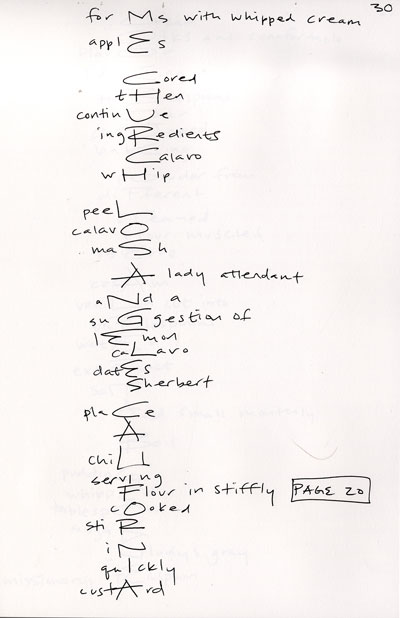 30
for Ms with whipped cream
applEs
Cored
tHen
continUe
ingRedients
Calavo
wHip
peeL
calavO
maSh
A lady attendant
aNd a
suGgestion of
lEmon
caLavo
datEs
Sherbert
plaCe
A
chiLl
servIng
Flour in stiffly PAGE 20
cOoked
stiR
iN
quIckly
custArd